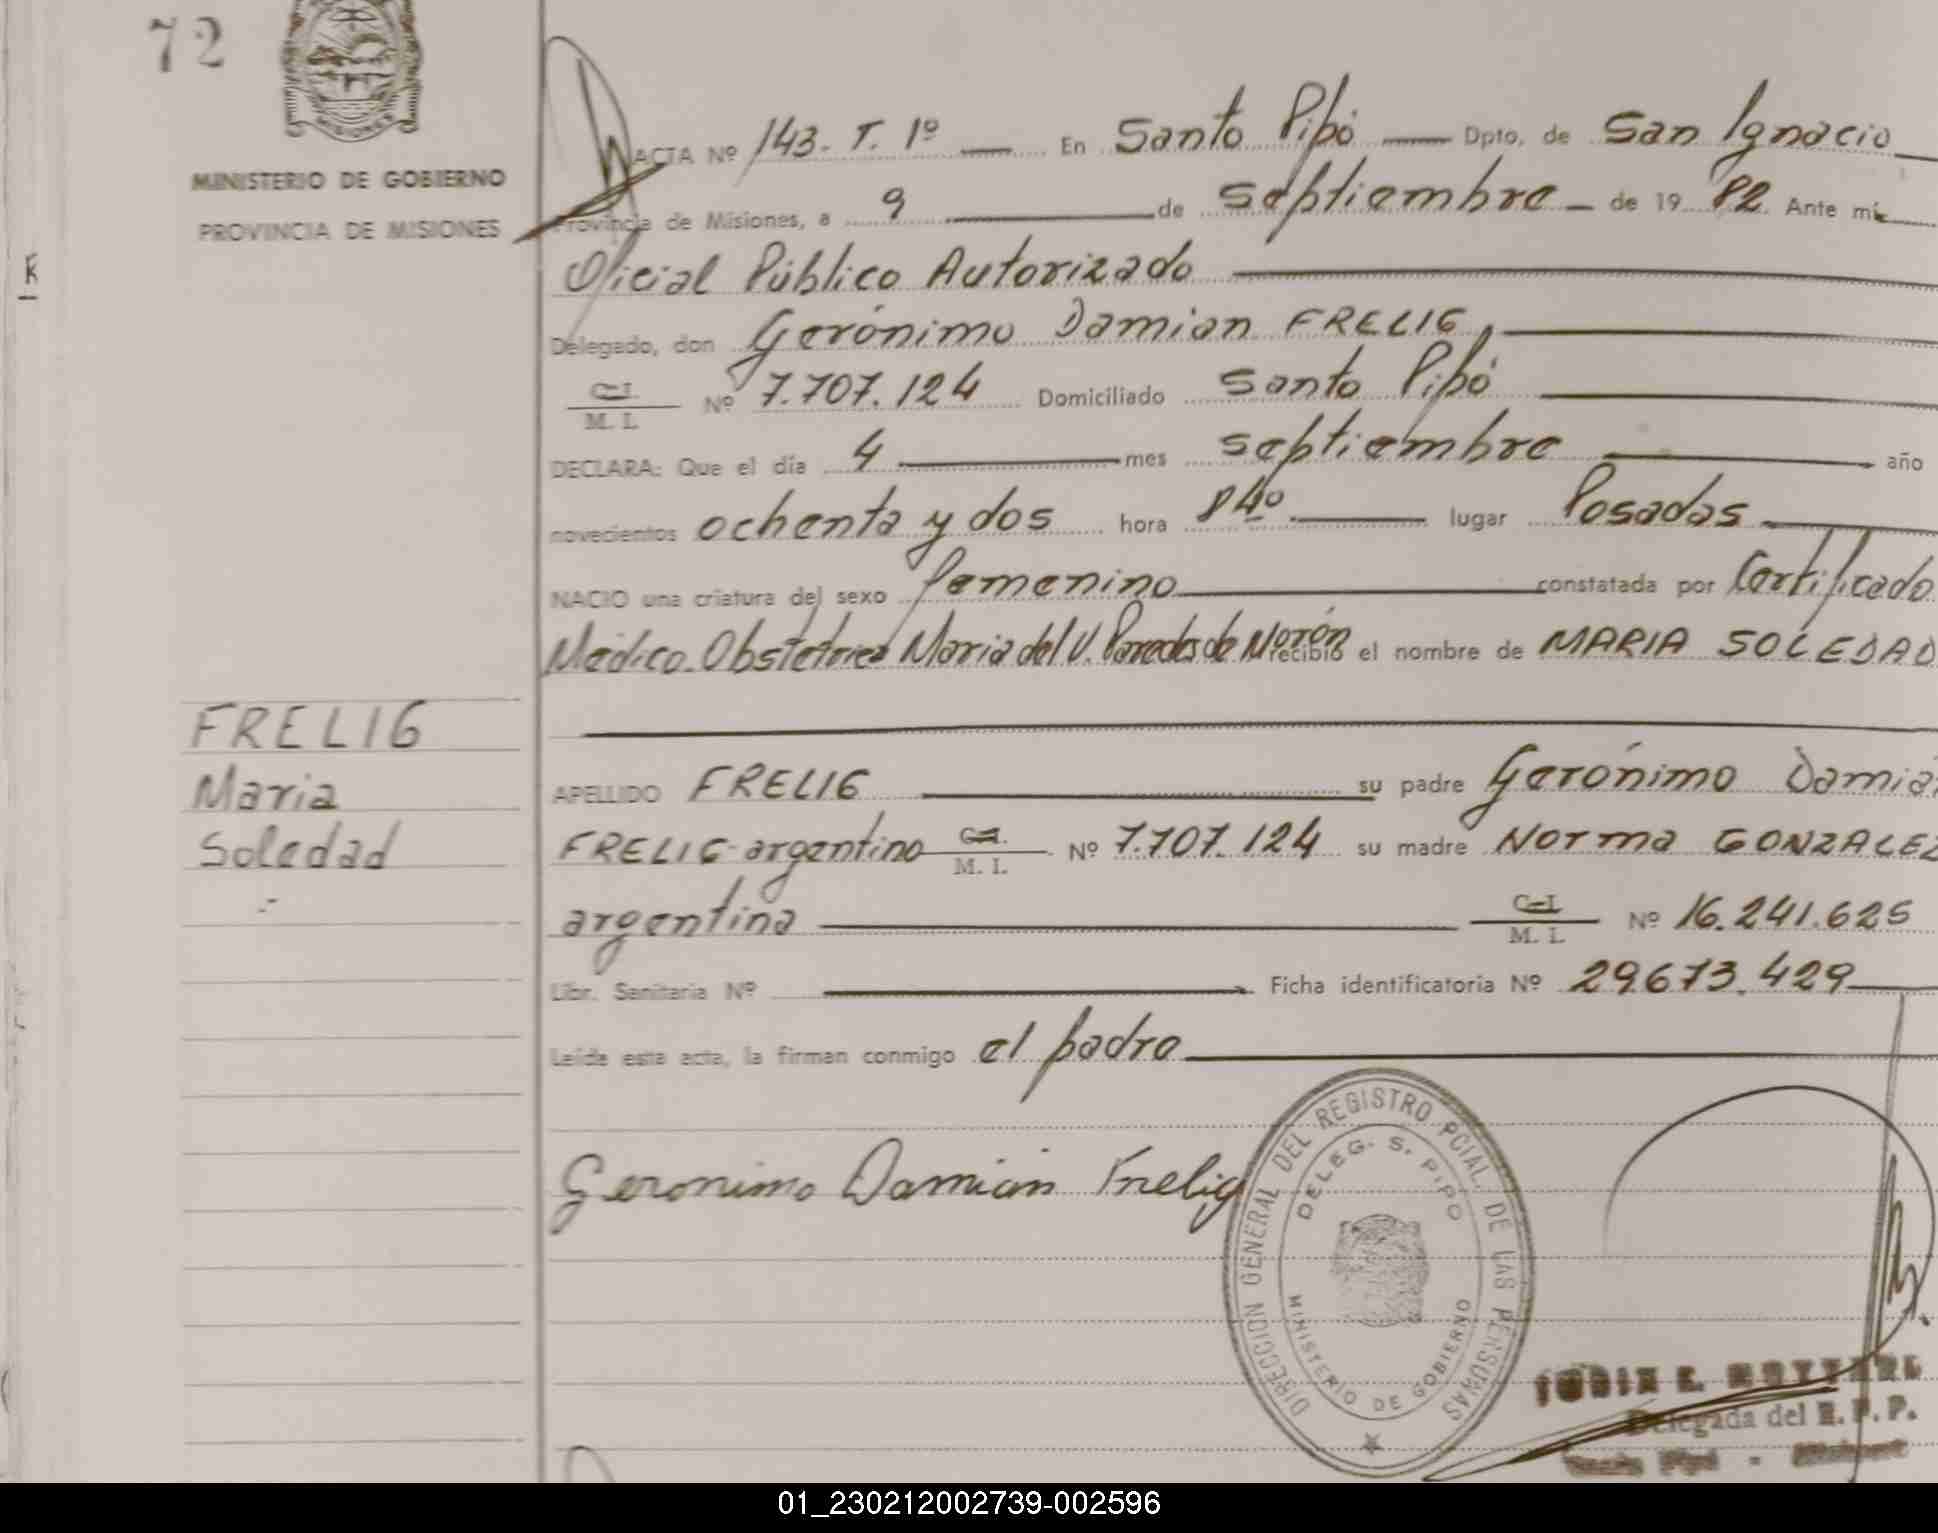 72
MISIONES
MINISTERIO DE GOBIERNO
PROVINCIA DE MISIONES
FRELIG
Maria
Soledad
ACTA Nº 143. T. 1º En Santo Pipó Dpto. de San Ignacio
Provincia de Misiones, a 9 de septiembre de 19 82 Ante mi
Oficial Público Autorizado
Delegado, don Gerónimo Damian FRELIG,
C. I. M. I. Nº 7.707.124 Domiciliado Santo Pipó
DECLARA: Que el día 4 mes septiembre año
novecientos ochenta y dos hora lugar Posadas
NACIO una criatura del sexo femenino constatada por Certificado
Médico. Obstetrica Maria del V. Paredes de Morón recibió el nombre de MARIA SOLEDAD
APELLIDO FRELIG su padre Gerónimo Damia
FRELIG argentino C. I. M. I. Nº 7.707.124 su madre Norma GONZALEZ
argentina C. I. M. I. Nº 16.241.625
Libr. Sanitaria Nº Ficha identificatoria Nº 29.673.429
Leída esta acta, la firman conmigo el padre
Geronimo Damián Frelig
DIRECCION GENERAL DEL REGISTRO PCIAL. DE LAS PERSONAS
DELEG. S. PIPO
MINISTERIO DE GOBIERNO
Delegada del R. P. P.
01_230212002739-002596